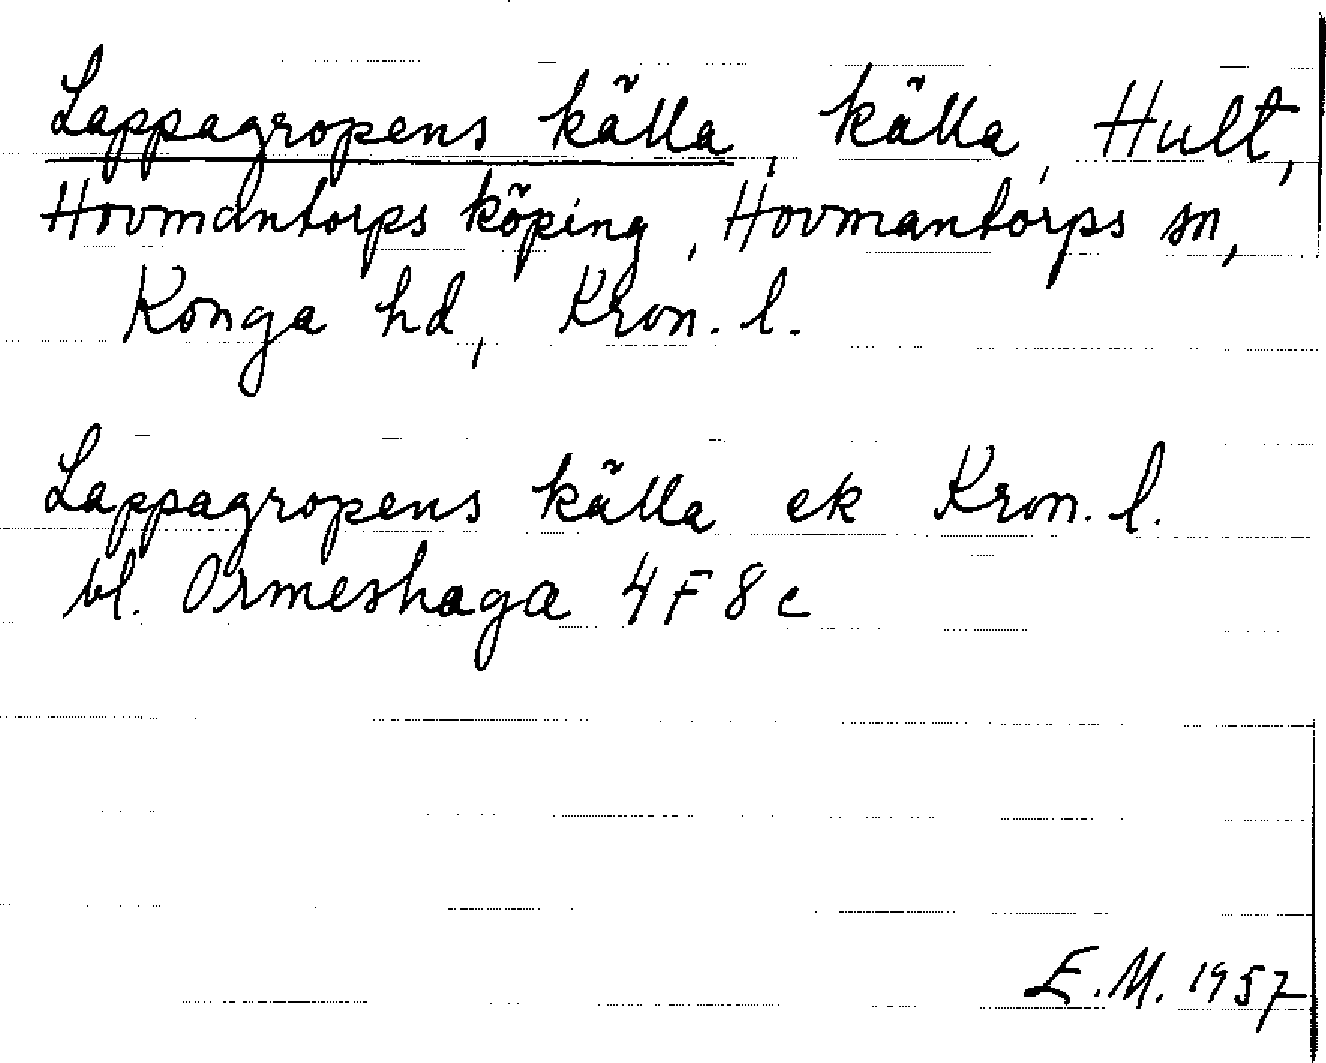 Lappagropens källa, källa, Hult,
Hovmantorps köping, Hovmantorps sn,
Konga hd, Kron. l.
Lappagropens källa ek Kron. l.
bl. Ormeshaga 4F8c
E.M. 1957